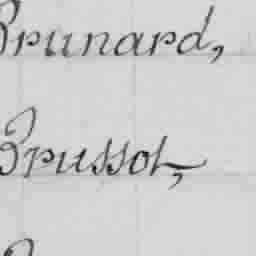 Brunard,
Brussot,